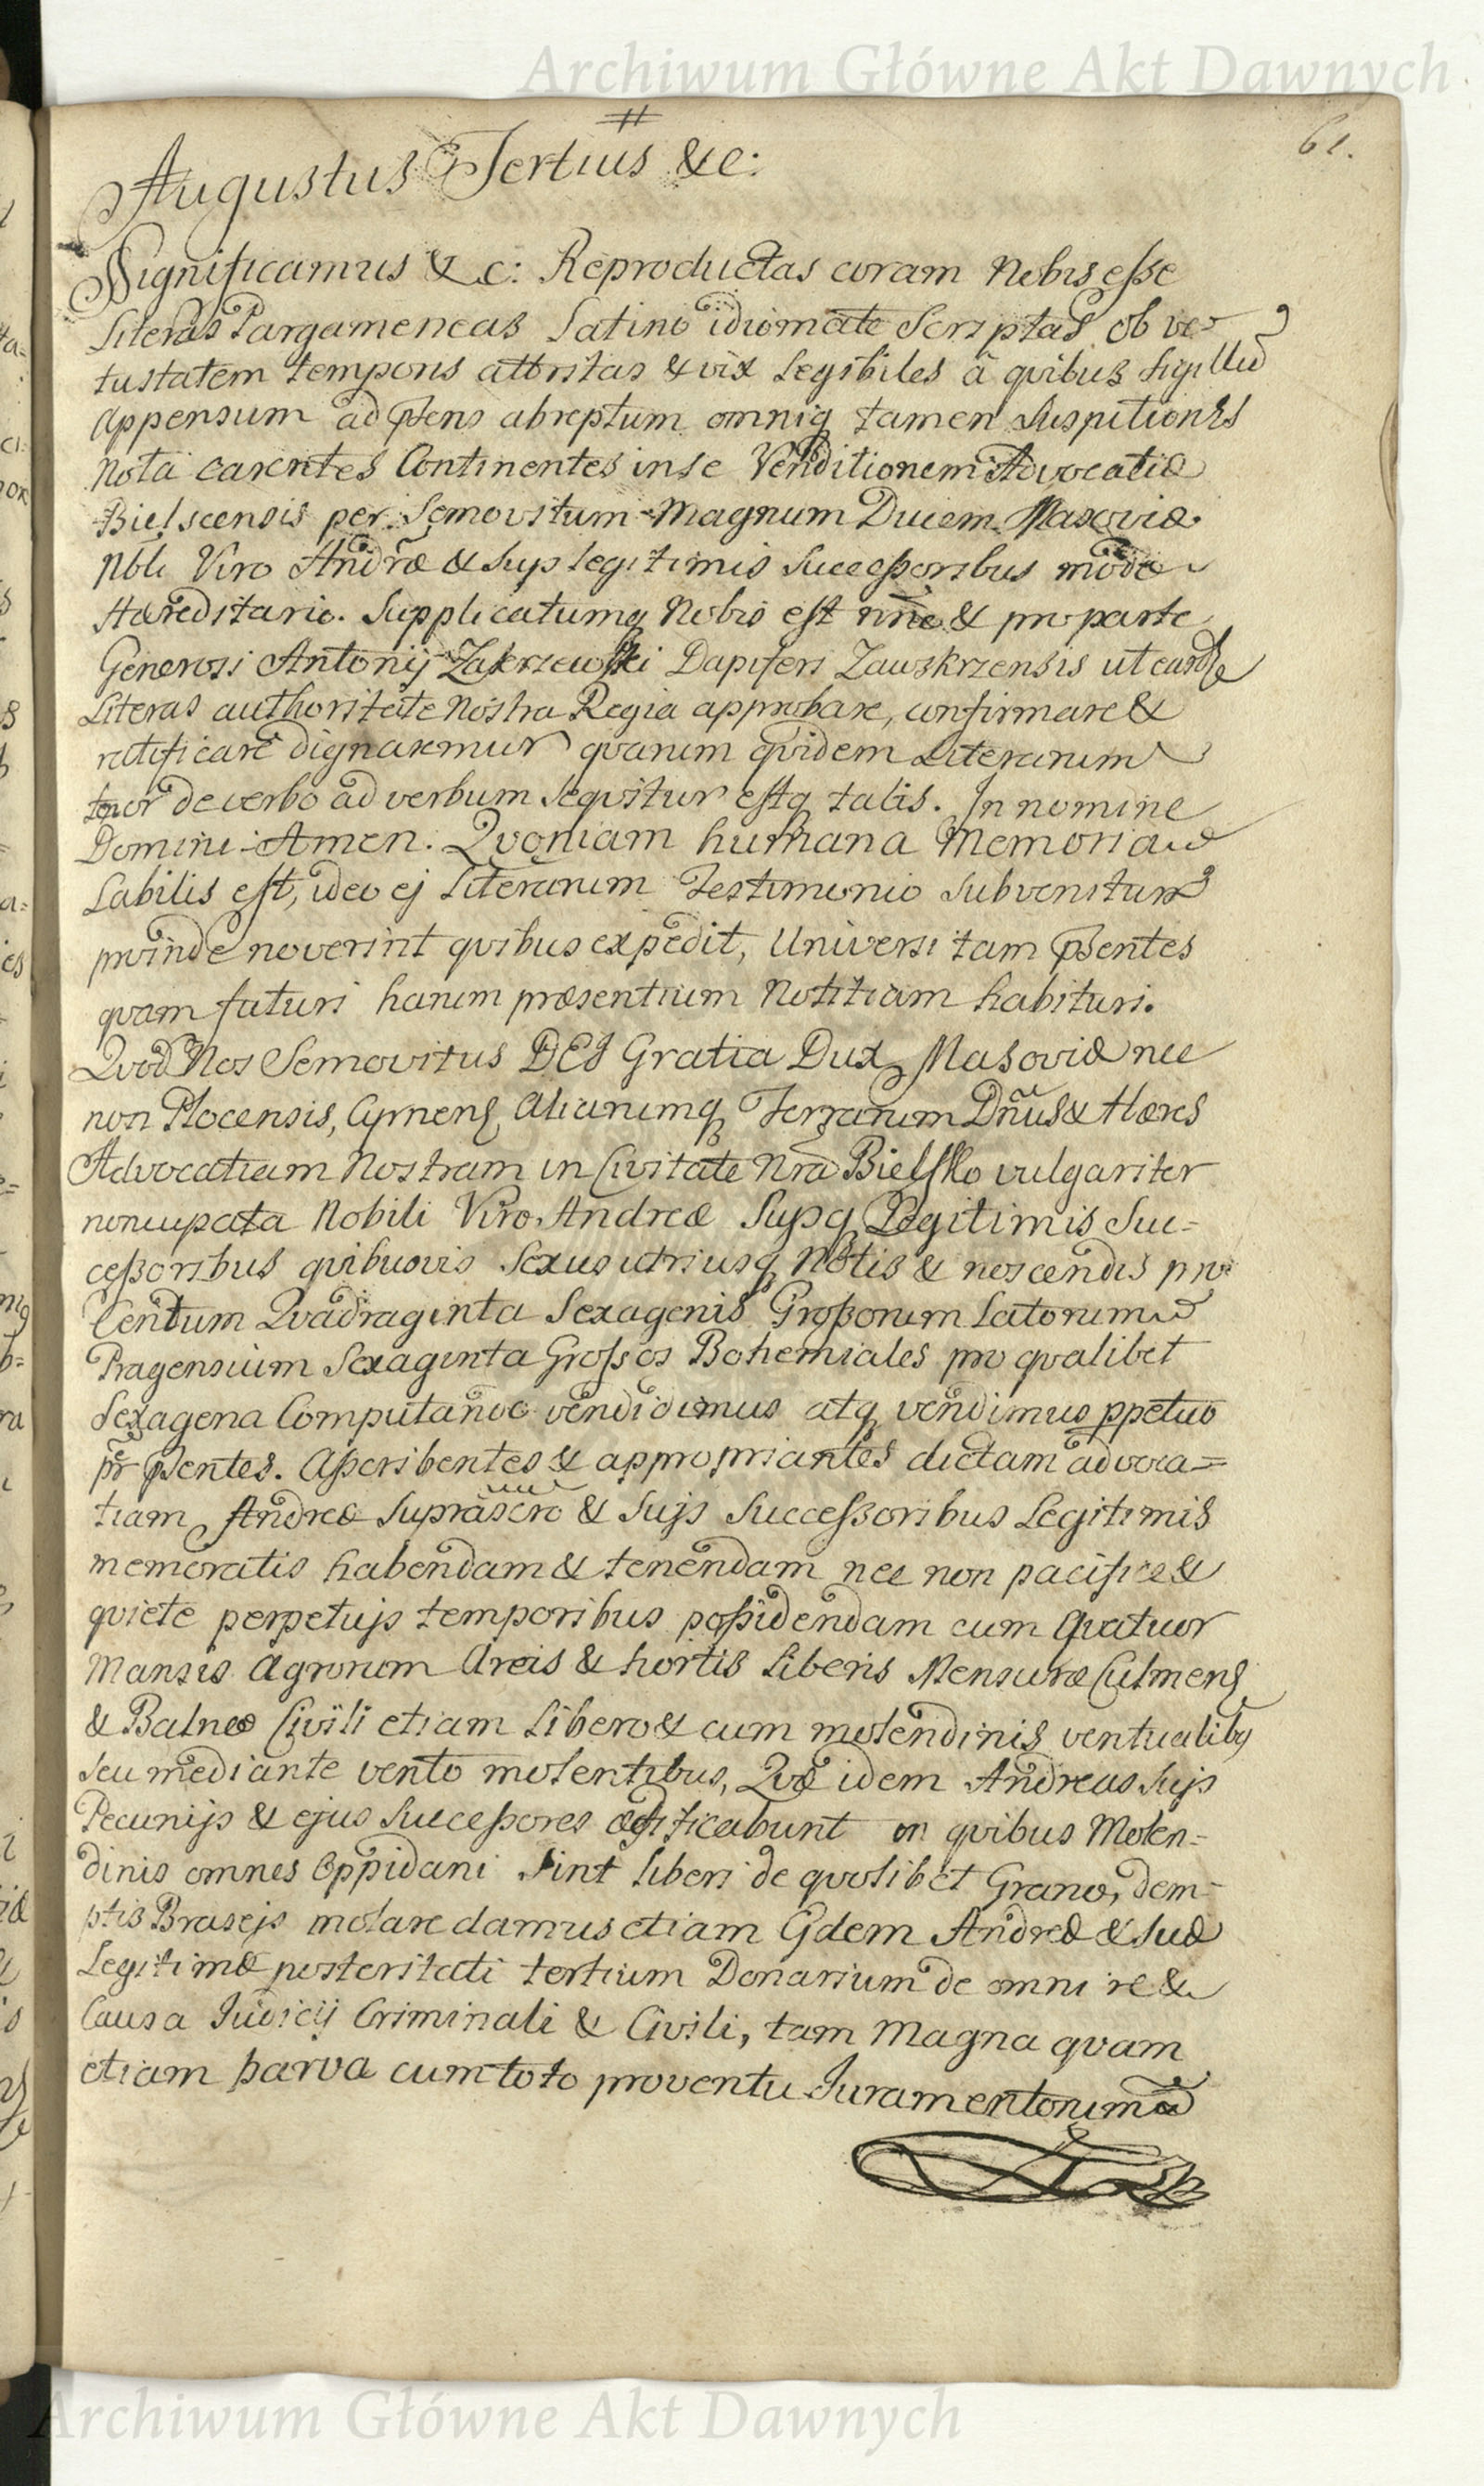 Archiwum Główne Akt Dawnych
61.
#
Augustus Tertius &c:
Significamus &c: Reproductas coram Nobis eſse
Literas Pargameneas Latino idiomate Scriptas ob ve-
tustatem temporis attritas & vix Legibiles à quibus Sigillũ
appensum ad pñs abreptum omniq tamen Suspitionis
Nota carentes Continentes in se Venditionem Advocatiæ
Bielscensis per Semovitum Magnum Ducem Masoviæ
Nbli Viro Andreæ & Suis legitimis Succeſsoribus modo
Hæreditario. Supplicatumq Nobis est nñe & pro parte
Generosi Antonij Zakrzewski Dapiferi Zawskrzensis ut easdẽ
Literas authoritate Nostra Regia approbare, confirmare &
ratificare dignaremur quarum quidem Literarum
tenor de verbo ad verbum sequitur estq talis. In nomine
Domini Amen. Quoniam humana Memoria
Labilis est, ideo ej Literarum Testimonio Subvenitur
proinde noverint quibus expedit, Universi tam pñsentes
quam futuri harum præsentium Notitiam habituri.
Quod Nos Semovitus DEI Gratia Dux Masoviæ nec
non Plocensis, Cyrnens, Aliarumq Terrarum Dñus & Hæres
Advocatiam Nostram in Civitate Nrã Bielsko vulgariter
noncupata Nobili Viro Andreæ Suisq Legitimis Suc-
ceſsoribus quibusvis Sexus utriusq Natis & nescendis pro
Centum Quadraginta Sexagenis Groſsorum Latorum
Pragensium Sexaginta Groſsos Bohemiales pro qualibet
Sexagena Computando vendidimus atq vendimus ppetuo
pr pñsentes. Aſscribentes & appropriantes dictam advoca-
tiam Andreæ Suprascrõ & Sujs Succeſsoribus Legitimis
memoratis habendam & tenendam nec non pacifice &
quiete perpetujs temporibus poſsidendam cum Quatuor
Mansis Agrorum Areis & hortis Liberis Mensuræ Culmens
& Balneo Civili etiam Libero & cum molendinis ventualibus
seu mediante vento molentibus, Quæ idem Andreas Sujs
Pecunijs & ejus Succeſsores ædificabunt in quibus Molen-
dinis omnes Oppidani sint liberi de quolibet Grano, dem-
ptis Brasejs molare damus etiam Eidem Andreæ & Suæ
Legitimæ posteritati tertium Denarium de omni re &
Causa Judicij Criminali & Civili, tam Magna quam
etiam parva cum toto proventu Juramentorum
Archiwum Główne Akt Dawnych